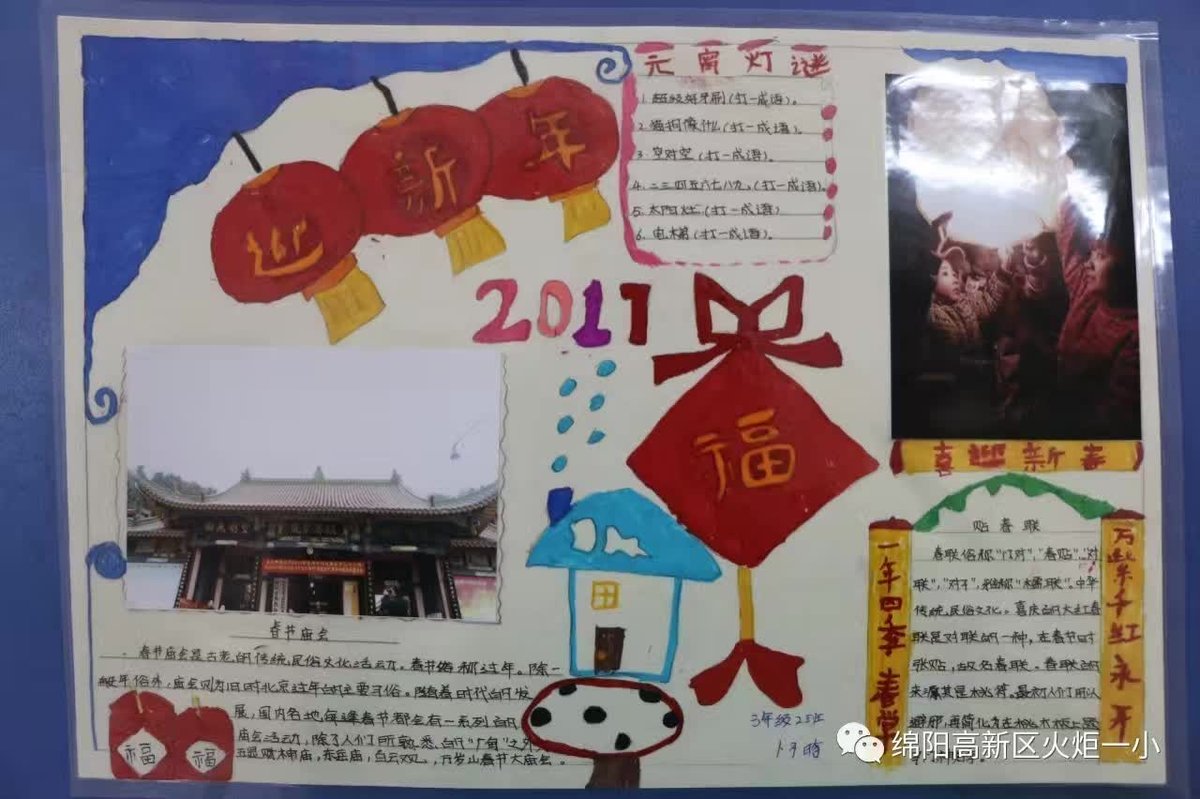 迎新年
元宵灯谜
1. 超级好牙刷(打一成语)。
2. 猫狗像什么(打一成语)。
3. 空对空(打一成语)。
4. 二三四五六七八九。(打一成语)。
5. 太阳灶(打一成语)
6. 电梯(打一成语)。
2017
福
喜迎新春
贴春联
春联俗称"门对","春贴","对
联","对子",雅称"桃联"。中华
传统民俗文化。喜庆的大红春
联是对联的一种,在春节时
张贴,故名春联。春联的
来源其是桃符。最初人们用以
避邪,
一年四季春常
万紫千红永开
春节庙会
春节庙会是古老的传统民俗文化活动。春节俗称过年。除一
般年俗外,庙会则为旧时北京过年的主要习俗。随着时代的发
展,国内各地每逢春节都会有一系列的
庙会活动,除了人们所熟悉的"厂甸"之外
东岳庙,白云观,万岁山春节大庙会。
福
福
3年级2班
绵阳高新区火炬一小